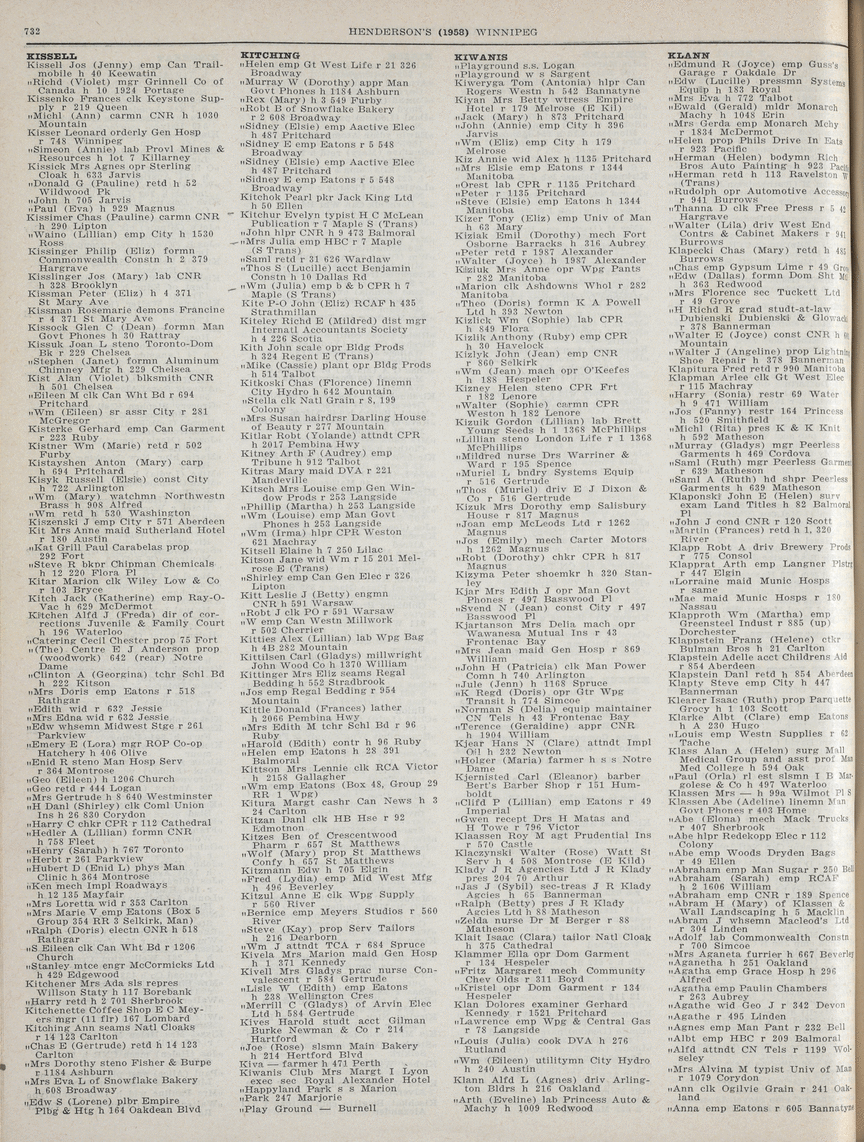 732
HENDERSON'S (1958) WINNIPEG
KISSELL
Kissell Jos (Jenny) emp Can Trail-
mobile h 40 Keewatin
„Richd (Violet) mgr Grinnell Co of
Canada h 10 1924 Portage
Kissenko Frances clk Keystone Sup-
ply r 219 Queen
„Michl (Ann) carmn CNR h 1030
Mountain
Kisser Leonard orderly Gen Hosp
r 748 Winnipeg
„Simeon (Annie) lab Provl Mines &
Resources h lot 7 Killarney
Kissick Mrs Agnes opr Sterling
Cloak h 633 Jarvis
„Donald G (Pauline) retd h 52
Wildwood Pk
„John h 705 Jarvis
„Paul (Eva) h 929 Magnus
Kissimer Chas (Pauline) carmn CNR
h 290 Lipton
„Waino (Lillian) emp City h 1530
Ross
Kissinger Philip (Eliz) formn
Commonwealth Constn h 2 379
Hargrave
Kisslinger Jos (Mary) lab CNR
h 328 Brooklyn
Kissman Peter (Eliz) h 4 371
St Mary Ave
Kissman Rosemarie demons Francine
r 4 371 St Mary Ave
Kissock Glen C (Dean) formn Man
Govt Phones h 30 Rattray
Kissuk Joan L steno Toronto-Dom
Bk r 229 Chelsea
„Stephen (Janet) formn Aluminum
Chimney Mfg h 229 Chelsea
Kist Alan (Violet) blksmith CNR
h 501 Chelsea
„Eileen M clk Can Wht Bd r 694
Pritchard
„Wm (Eileen) sr assr City r 281
McGregor
Kisterke Gerhard emp Can Garment
r 223 Ruby
Kistner Wm (Marie) retd r 502
Furby
Kistayshen Anton (Mary) carp
h 694 Pritchard
Kisyk Russell (Elsie) const City
h 722 Arlington
„Wm (Mary) watchmn Northwestn
Brass h 908 Alfred
„Wm retd h 530 Washington
Kiszenski J emp City r 571 Aberdeen
Kit Mrs Anne maid Sutherland Hotel
r 180 Austin
„Kat Grill Paul Carabelas prop
292 Fort
„Steve R bkpr Chipman Chemicals
h 12 220 Flora Pl
Kitar Marion clk Wiley Low & Co
r 103 Bryce
Kitch Jack (Katherine) emp Ray-O-
Vac h 629 McDermot
Kitchen Alfd J (Freda) dir of cor-
rections Juvenile & Family Court
h 196 Waterloo
„Catering Cecil Chester prop 75 Fort
„(The) Centre E J Anderson prop
(woodwork) 642 (rear) Notre
Dame
„Clinton A (Georgina) tchr Schl Bd
h 222 Kitson
„Mrs Doris emp Eatons r 518
Rathgar
„Edith wid r 632 Jessie
„Mrs Edna wid r 632 Jessie
„Edw whsemn Midwest Stge r 261
Parkview
„Emery E (Lora) mgr ROP Co-op
Hatchery h 406 Olive
„Enid R steno Man Hosp Serv
r 364 Montrose
„Geo (Eileen) h 1206 Church
„Geo retd r 444 Logan
„Mrs Gertrude h 8 640 Westminster
„H Danl (Shirley) clk Coml Union
Ins h 26 830 Corydon
„Harry C chkr CPR r 112 Cathedral
„Hedler A (Lillian) formn CNR
h 758 Fleet
„Henry (Sarah) h 767 Toronto
„Herbt r 261 Parkview
„Hubert D (Enid L) phys Man
Clinic h 364 Montrose
„Ken mech Impl Roadways
h 12 135 Mayfair
„Mrs Loretta wid r 353 Carlton
„Mrs Marie V emp Eatons (Box 5
Group 354 RR 3 Selkirk, Man)
„Ralph (Doris) electn CNR h 518
Rathgar
„S Eileen clk Can Wht Bd r 1206
Church
„Stanley mtce engr McCormicks Ltd
h 429 Edgewood
Kitchener Mrs Ada sls repres
Willson Staty h 117 Borebank
„Harry retd h 2 701 Sherbrook
Kitchenette Coffee Shop E C Mey-
ers mgr (11 flr) 167 Lombard
Kitching Ann seams Natl Cloaks
r 14 123 Carlton
„Chas E (Gertrude) retd h 14 123
Carlton
„Mrs Dorothy steno Fisher & Burpe
r 1184 Ashburn
„Mrs Eva L of Snowflake Bakery
h 608 Broadway
„Edw S (Lorene) plbr Empire
Plbg & Htg h 164 Oakdean Blvd
KITCHING
„Helen emp Gt West Life r 21 326
Broadway
„Murray W (Dorothy) appr Man
Govt Phones h 1184 Ashburn
„Rex (Mary) h 3 549 Furby
„Robt B of Snowflake Bakery
r 2 608 Broadway
„Sidney (Elsie) emp Aactive Elec
h 487 Pritchard
„Sidney E emp Eatons r 5 548
Broadway
„Sidney (Elsie) emp Aactive Elec
h 487 Pritchard
„Sidney E emp Eatons r 5 548
Broadway
Kitchok Pearl pkr Jack King Ltd
h 50 Ellen
Kitchur Evelyn typist H C McLean
Publication r 7 Maple S (Trans)
„John hlpr CNR h 9 473 Balmoral
„Mrs Julia emp HBC r 7 Maple
(S Trans)
„Saml retd r 31 626 Wardlaw
„Thos S (Lucille) acct Benjamin
Constn h 10 Dallas Rd
„Wm (Julia) emp b & b CPR h 7
Maple (S Trans)
Kite P-O John (Eliz) RCAF h 435
Strathmillan
Kiteley Richd E (Mildred) dist mgr
Internatl Accountants Society
h 4 226 Scotia
Kith John scale opr Bldg Prods
h 324 Regent E (Trans)
„Mike (Cassie) plant opr Bldg Prods
h 514 Talbot
Kitkoski Chas (Florence) linemn
City Hydro h 642 Mountain
„Stella clk Natl Grain r 8, 199
Colony
„Mrs Susan hairdrsr Darling House
of Beauty r 277 Mountain
Kitlar Robt (Yolande) attndt CPR
h 2017 Pembina Hwy
Kitney Arth F (Audrey) emp
Tribune h 912 Talbot
Kitras Mary maid DVA r 221
Mandeville
Kitsch Mrs Louise emp Gen Win-
dow Prods r 253 Langside
„Phillip (Martha) h 253 Langside
„Wm (Louise) emp Man Govt
Phones h 253 Langside
„Wm (Irma) hlpr CPR Weston
621 Machray
Kitsell Elaine h 7 250 Lilac
Kitson Jane wid Wm r 15 201 Mel-
rose E (Trans)
„Shirley emp Can Gen Elec r 326
Lipton
Kitt Leslie J (Betty) engmn
CNR h 591 Warsaw
„Robt J clk PO r 591 Warsaw
„W emp Can Westn Millwork
r 502 Cherrier
Kitties Alex (Lillian) lab Wpg Bag
h 4B 282 Mountain
Kittilsen Carl (Gladys) millwright
John Wood Co h 1370 William
Kittinger Mrs Eliz seams Regal
Bedding h 552 Stradbrook
„Jos emp Regal Bedding r 954
Mountain
Kittle Donald (Frances) lather
h 2066 Pembina Hwy
„Mrs Edith M tchr Schl Bd r 96
Ruby
„Harold (Edith) contr h 96 Ruby
„Helen emp Eatons h 28 391
Balmoral
Kittson Mrs Lennie clk RCA Victor
h 2158 Gallagher
„Wm emp Eatons (Box 48, Group 29
RR 1 Wpg)
Kitura Margt cashr Can News h 3
24 Carlton
Kitzan Danl clk HB Hse r 92
Edmotnon
Kitzes Ben of Crescentwood
Pharm r 657 St Matthews
„Wolf (Mary) prop St Matthews
Confy h 657 St Matthews
Kitzmann Edw h 705 Elgin
„Fred (Lydia) emp Mid West Mfg
h 496 Beverley
Kitzul Anne E clk Wpg Supply
r 560 River
„Bernice emp Meyers Studios r 560
River
„Steve (Kay) prop Serv Tailors
h 216 Dearborn
„Wm J attndt TCA r 684 Spruce
Kivela Mrs Marion maid Gen Hosp
h 1 371 Kennedy
Kivell Mrs Gladys prac nurse Con-
valescent r 584 Gertrude
„Lisle W (Edith) emp Eatons
h 238 Wellington Cres
„Merrill C (Gladys) of Arvin Elec
Ltd h 584 Gertrude
Kives Harold studt acct Gilman
Burke Newman & Co r 214
Hartford
„Joe (Rose) slsmn Main Bakery
h 214 Hertford Blvd
Kiva — farmer h 471 Perth
Kiwanis Club Mrs Margt I Lyon
exec sec Royal Alexander Hotel
„Happyland Park s s Marion
„Park 247 Marjorie
„Play Ground — Burnell
KIWANIS
„Playground s.s. Logan
„Playground w s Sargent
Kiweryga Tom (Antonia) hlpr Can
Rogers Westn h 542 Bannatyne
Kiyan Mrs Betty wtress Empire
Hotel r 179 Melrose (E Kil)
„Jack (Mary) h 873 Pritchard
„John (Annie) emp City h 396
Jarvis
„Wm (Eliz) emp City h 179
Melrose
Kiz Annie wid Alex h 1135 Pritchard
„Mrs Elsie emp Eatons r 1344
Manitoba
„Orest lab CPR r 1135 Pritchard
„Peter r 1135 Pritchard
„Steve (Elsie) emp Eatons h 1344
Manitoba
Kizer Tony (Eliz) emp Univ of Man
h 63 Mary
Kiziak Emil (Dorothy) mech Fort
Osborne Barracks h 316 Aubrey
„Peter retd r 1987 Alexander
„Walter (Joyce) h 1987 Alexander
Kiziuk Mrs Anne opr Wpg Pants
r 282 Manitoba
„Marion clk Ashdowns Whol r 282
Manitoba
„Theo (Doris) formn K A Powell
Ltd h 393 Newton
Kizlick Wm (Sophie) lab CPR
h 849 Flora
Kizlik Anthony (Ruby) emp CPR
h 30 Havelock
Kizlyk John (Jean) emp CNR
r 860 Selkirk
„Wm (Jean) mach opr O'Keefes
h 188 Hespeler
Kizney Helen steno CPR Frt
r 182 Lenore
„Walter (Sophie) carmn CPR
Weston h 182 Lenore
Kizuik Gordon (Lillian) lab Brett
Young Seeds h 1 1368 McPhillips
„Lillian steno London Life r 1 1368
McPhillips
„Mildred nurse Drs Warriner &
Ward r 195 Spence
„Muriel L bndry Systems Equip
r 516 Gertrude
„Thos (Muriel) driv E J Dixon &
Co r 516 Gertrude
Kizuk Mrs Dorothy emp Salisbury
House r 817 Magnus
„Joan emp McLeods Ltd r 1262
Magnus
„Jos (Emily) mech Carter Motors
h 1262 Magnus
„Robt (Dorothy) chkr CPR h 817
Magnus
Kizyma Peter shoemkr h 320 Stan-
ley
Kjar Mrs Edith J opr Man Govt
Phones r 497 Basswood Pl
„Svend N (Jean) const City r 497
Basswood Pl
Kjartanson Mrs Delia mach opr
Wawanesa Mutual Ins r 43
Frontenac Bay
„Mrs Jean maid Gen Hosp r 869
William
„John H (Patricia) clk Man Power
Comn h 740 Arlington
„Jule (Jenn) h 1168 Spruce
„K Regd (Doris) opr Gtr Wpg
Transit h 774 Simcoe
„Norman S (Delia) equip maintainer
CN Tels h 43 Frontenac Bay
„Terence (Geraldine) appr CNR
h 1904 William
Kjear Hans N (Clare) attndt Impl
Oil h 232 Newton
„Holger (Maria) farmer h s s Notre
Dame
Kjernisted Carl (Eleanor) barber
Bert's Barber Shop r 151 Hum-
boldt
„Clifd P (Lillian) emp Eatons r 49
Imperial
„Gwen recept Drs H Matas and
H Towe r 796 Victor
Klaassen Roy M agt Prudential Ins
r 570 Castle
Klaczynski Walter (Rose) Watt St
Serv h 4 508 Montrose (E Kild)
Klady J R Agencies Ltd J R Klady
pres 204 70 Arthur
„Jas J (Sybil) sec-treas J R Klady
Agcies h 65 Bannerman
„Ralph (Betty) pres J R Klady
Agcies Ltd h 88 Matheson
„Zelda nurse Dr M Berger r 88
Matheson
Klait Isaac (Clara) tailor Natl Cloak
h 375 Cathedral
Klammer Ella opr Dom Garment
r 134 Hespeler
„Fritz Margaret mech Community
Chev Olds r 311 Boyd
„Kristel opr Dom Garment r 134
Hespeler
Klan Dolores examiner Gerhard
Kennedy r 1521 Pritchard
„Lawrence emp Wpg & Central Gas
r 78 Langside
„Louis (Julia) cook DVA h 276
Rutland
„Wm (Eileen) utilitymn City Hydro
h 240 Austin
Klann Alfd L (Agnes) driv Arling-
ton Bldrs h 216 Oakland
„Arth (Eveline) lab Princess Auto &
Machy h 1009 Redwood
KLANN
„Edmund R (Joyce) emp Guss's
Garage r Oakdale Dr
„Edw (Lucille) pressmn Systems
Equip h 183 Royal
„Mrs Eva h 772 Talbot
„Ewald (Gerald) mldr Monarch
Machy h 1048 Erin
„Mrs Gerda emp Monarch Mchy
r 1834 McDermot
„Helen prop Phils Drive In Eats
r 923 Pacific
„Herman (Helen) bodymn Rich
Bros Auto Painting h 923 Pacific
„Herman retd h 113 Ravelston W
(Trans)
„Rudolph opr Automotive
r 941 Burrows
„Thanna D clk Free Press r 5 42
Hargrave
„Walter (Lila) driv West End
Contrs & Cabinet Makers r 941
Burrows
Klapecki Chas (Mary) retd h 485
Burrows
„Chas emp Gypsum Lime r 49
„Edw (Dallas) formn Dom Sht
h 363 Redwood
„Mrs Florence sec Tuckett Ltd
r 49 Grove
„H Richd R grad studt-at-law
Dubienski Dubienski &
r 378 Bannerman
„Walter E (Joyce) const CNR h
Mountain
„Walter J (Angeline) prop Lightning
Shoe Repair h 378 Bannerman
Klapitura Fred retd r 990 Manitoba
Klapman Arlee clk Gt West Elec
r 115 Machray
„Harry (Sonia) restr 69 Water
h 9 471 William
„Jos (Fanny) restr 164 Princess
h 520 Smithfield
„Michl (Rita) pres K & K Knit
h 592 Matheson
„Murray (Gladys) mgr Peerless
Garments h 469 Cordova
„Saml (Ruth) mgr Peerless Garmen
r 639 Matheson
„Saml A (Ruth) hd shpr Peerless
Garments h 639 Matheson
Klaponski John E (Helen) surv
exam Land Titles h 82 Balmoral
Pl
„John J cond CNR r 120 Scott
„Martin (Frances) retd h 1, 320
River
Klapp Robt A driv Brewery Prods
r 775 Consol
Klapprat Arth emp Langner Plstrg
r 447 Elgin
„Lorraine maid Munic Hosps
r same
„Mae maid Munic Hosps r 180
Nassau
Klapproth Wm (Martha) emp
Greensteel Indust r 885 (up)
Dorchester
Klapstein Franz (Helene) ctkr
Bulman Bros h 21 Carlton
Klapstein Adelle acct Childrens Aid
r 854 Aberdeen
Klapstein Danl retd h 854 Aberdeen
Klapty Steve emp City h 447
Bannerman
Klearer Isaac (Ruth) prop Parquette
Grocy h 1 103 Scott
Klarke Albt (Clare) emp Eatons
h A 230 Hugo
„Louis emp Westn Supplies r 62
Tache
Klass Alan A (Helen) surg Mall
Medical Group and asst prof Man
Med College h 594 Oak
„Paul (Orla) rl est slsmn I B Mar-
golese & Co h 497 Waterloo
Klassen Mrs — h 98a Wilmot Pl S
Klassen Abe (Adeline) linemn Man
Govt Phones r 403 Home
„Abe (Elona) mech Mack Trucks
r 407 Sherbrook
„Abe hlpr Redekopp Elec r 112
Colony
„Abe emp Woods Dryden Bags
r 49 Ellen
„Abraham emp Man Sugar r 250
„Abraham (Sarah) emp RCAF
h 2 1606 William
„Abraham emp CNR r 189 Spence
„Abram H (Mary) of Klassen &
Wall Landscaping h 5 Macklin
„Abram J whsemn Macleod's Ltd
r 304 Linden
„Adolf lab Commonwealth Constn
r 700 Simcoe
„Mrs Aganeta furrier h 667 Beverley
„Aganetha h 251 Oakland
„Agatha emp Grace Hosp h 296
Alfred
„Agatha emp Paulin Chambers
r 263 Aubrey
„Agathe wid Geo J r 342 Devon
„Agathe r 495 Linden
„Agnes emp Man Pant r 232 Bell
„Albt emp HBC r 209 Balmoral
„Alfd attndt CN Tels r 1199 Wol-
seley
„Mrs Alvina M typist Univ of Man
r 1079 Corydon
„Ann clk Ogilvie Grain r 241 Oak-
land
„Anna emp Eatons r 605 Bannatyne